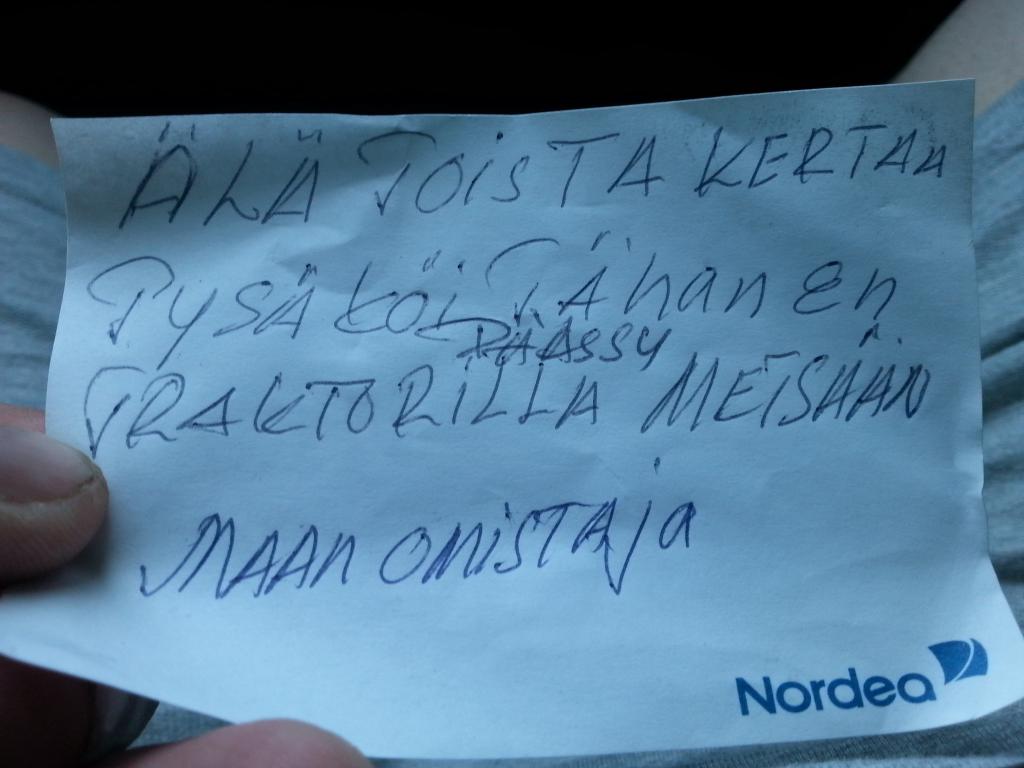 ÄLÄ TOISTA KERTAA
PYSÄKÖI TÄhän en
PÄÄSSY
TRAKTORILLA METSÄÄN
MAAN OMISTAja
Nordea